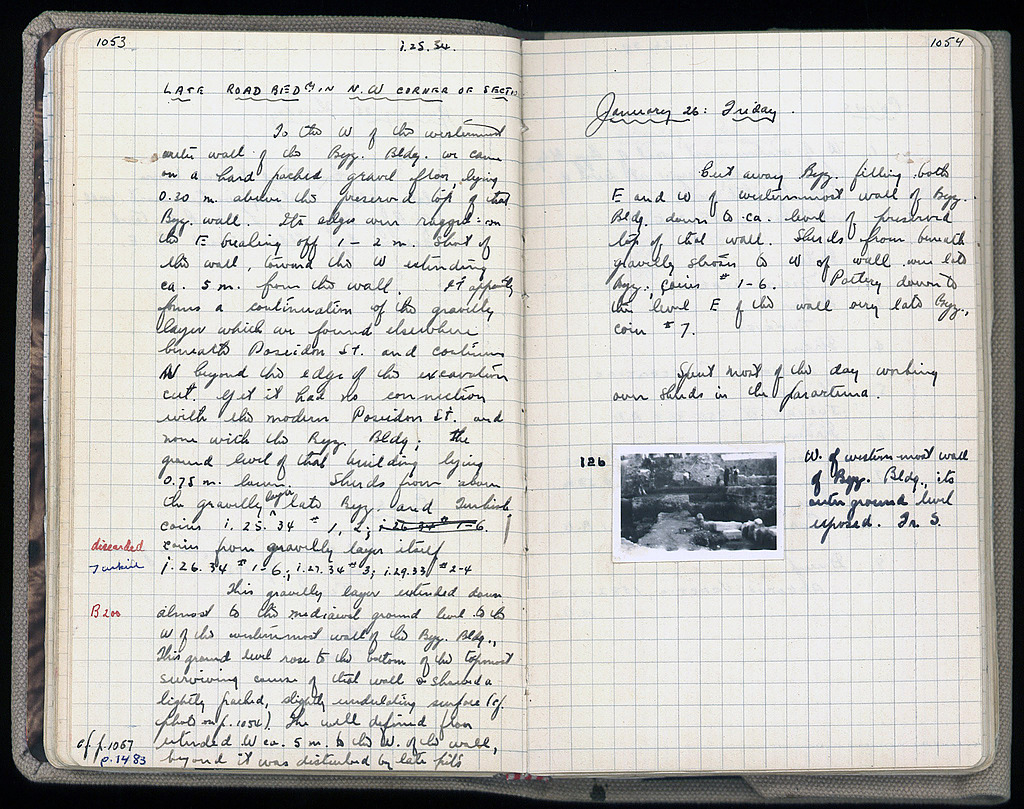 1053
1.25.34.
LATE ROAD BED IN N.W CORNER OF SECTION
To the W of the westernmost
outer wall of the Byz. Bldg. we came
on a hard packed gravel floor, lying
0.20 m. above the preserved top of that
Byz. wall. Its edges were ragged: on
the E breaking off 1 – 2 m. short of
the wall, toward the W extending
ca. 5 m. from the wall. It apparently
forms a continuation of the gravelly
layer which we found elsewhere
beneath Poseidon St. and continues
W beyond the edge of the excavation
cut. Yet it had no connection
with the modern Poseidon St. and
none with the Byz. Bldg; the
ground level of that building lying
0.75 m. lower. Sherds from above
the gravelly layer late Byz. and Turkish
coins 1.25.34 # 1, 2; 1.26.34 # 1-6.
discarded
coins from gravelly layer itself
Turkish
1.26.34 # 1-6; 1.27.34 # 3; 1.29.33 # 2-4
This gravelly layer extended down
B 200
almost to the mediaeval ground level to the
W of the westernmost wall of the Byz. Bldg..
This ground level rose to the bottom of the topmost
surviving course of that wall & showed a
lightly packed, slightly undulating surface (cf.
photo on p. 1054) The well defined floor
extended W ca. 5 m. to the W. of the wall,
cf p. 1067
p. 1483
beyond it was disturbed by late pits
1054
January 26: Friday.
Cut away Byz. filling both
E and W of westernmost wall of Byz.
Bldg. down to ca. level of preserved
top of that wall. Sherds from beneath
gravelly strosis to W of wall were late
Byz.; coins # 1-6. Pottery down to
this level E of the wall very late Byz.,
coin # 7.
Spent most of the day working
over sherds in the parartema.
126
W. of western-most wall
of Byz. Bldg., its
outer ground level
exposed. Fr. S.